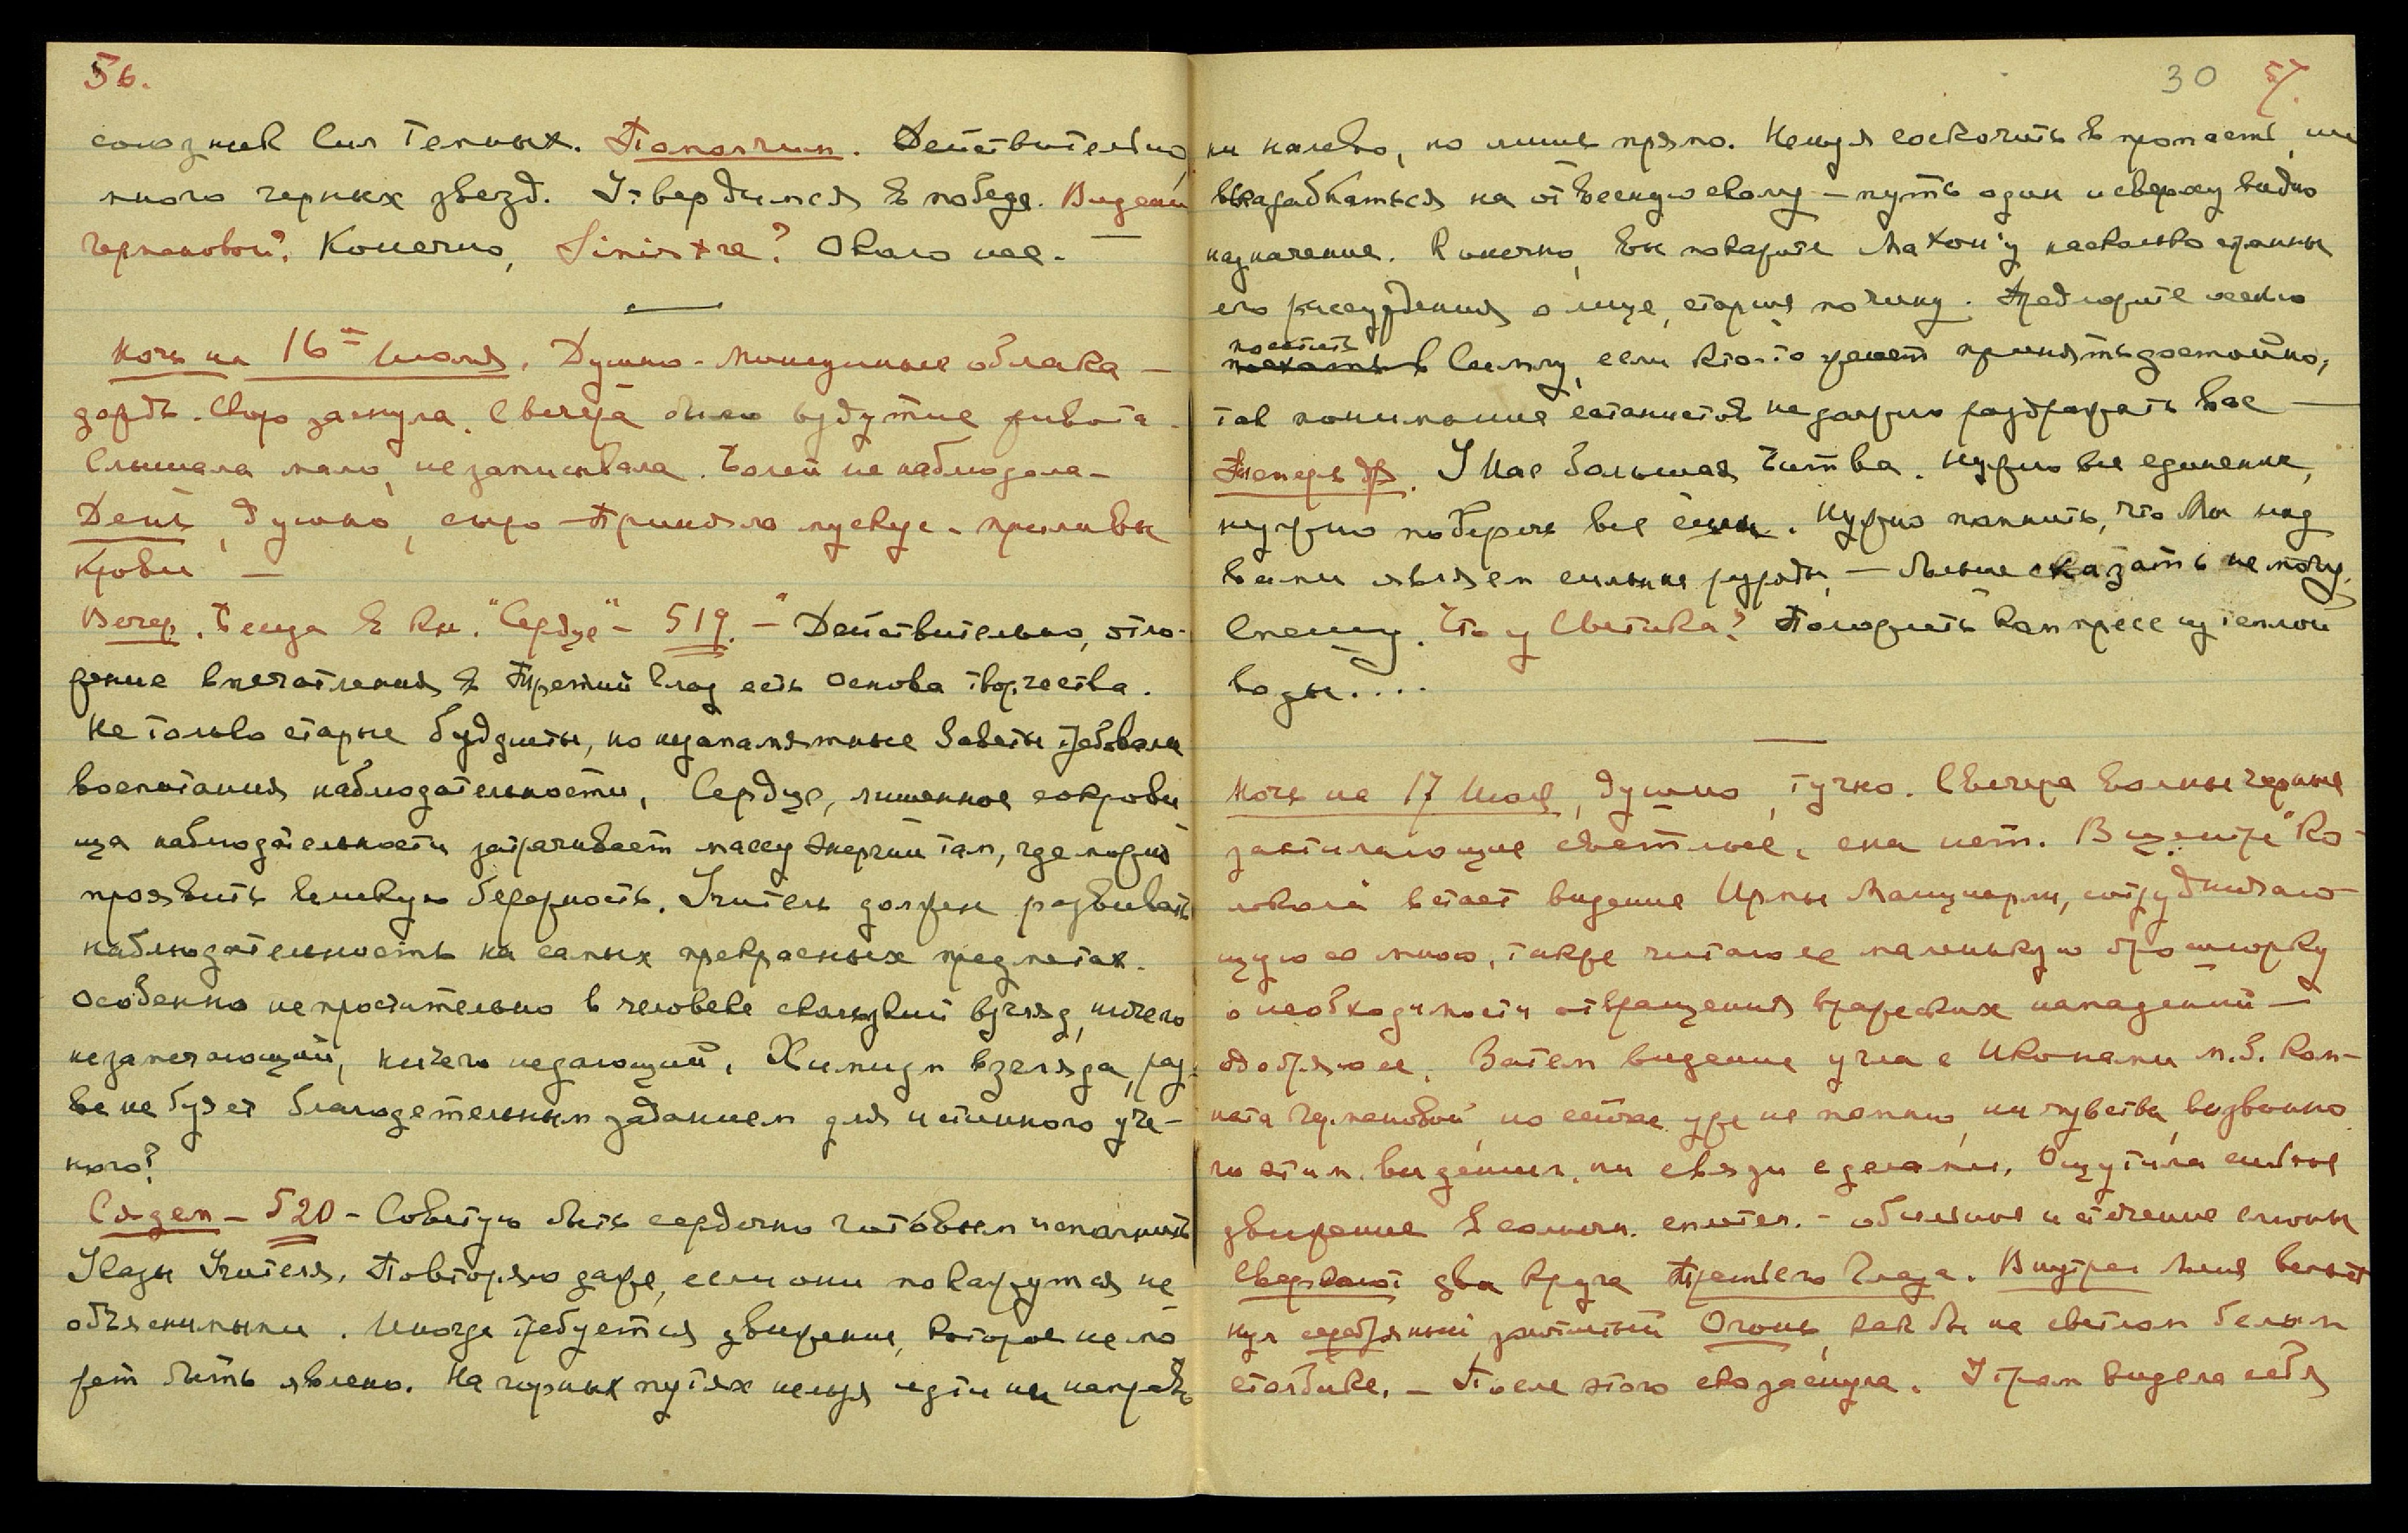 56.
союзник Сил Темных. Помолчим. Действительно,
много черных звезд. Утвердимся в победе. Видение
Германовой? Конечно, Sinistre? Около нее.
Ночь на 16ое Июля. Душно - Мочицинные облака —
дождь. Скоро заснула. С вечера было вздутие живота.
Слышала мало, не записывала. Болей не наблюдала —
День, душно, сыро - Приняла мускус - приливы
крови —
Вечер. Беседа в кн. "Сердце" - 519. - "Действительно, отло-
жение впечатления в Третий Глаз есть основа творчества.
Не только старые буддисты, но незапамятные Заветы требовали
воспитания наблюдательности. Сердце, лишенное сокрови
ща наблюдательности затрачивает массу энергии там, где нужно
проявить великую бережность. Учитель должен развивать
наблюдательность на самых прекрасных предметах.
Особенно непростительно в человеке скользкий взгляд, ничего
незамечающий, ничего недающий. Химизм взгляда, раз-
ве не будет благодетельным заданием для истинного уче-
ного?
Сядем - 520 - Советую быть сердечно готовым исполнить
Указы Учителя. Повторяю даже, если они покажутся не
объяснимыми. Иногда требуется движение, которое не мо
жет быть явлено. На горных путях нельзя идти ни направо
30 57.
ни налево, но лишь прямо. Нельзя соскочить в пропасть, ни
вскарабкаться на отвесную скалу — путь один и сверху видно
назначение. Конечно, Вы покажите Махон'у насколько странны
его рассуждения о лице, старше по чину. Предложите
посетить
поехать в Симлу, если кто-то умеет принять достойно,
так понимание сатанистов не должно раздражать Вас —
Теперь др. У Нас большая Битва. Нужно все единение,
нужно поберечь все силы. Нужно помнить, что Мы над
вами являем сильные, — больше сказать не могу.
Спешу. Что у Светика? Положить компресс из теплой
воды....
Ночь на 17 Июля, душно, тучно. С вечера волны черные
захватывающие светлые, сна нет. В центре "Ко-
локол" встает видение Ирмы Манциарли, сотрудничаю-
щую со мною, также читаю ее маленькую брошюрку
о необходимости отвращения вражеских нападений —
одобряю ее. Затем видение угла с Иконами м.б. ком-
ната Германовой, но сейчас уже не помню, ни чувства, вызванно
го этим видением, ни связи с делами. Ощутила сильное
движение в солнечн. сплетен. - обильное истечение слюны
Сверкают два круга Третьего Глаза. Внутри Меня вспых
нул серебряный золотистый Огонь, как бы на светлом белом
столбике. - После этого скоро заснула. Утром видела себя